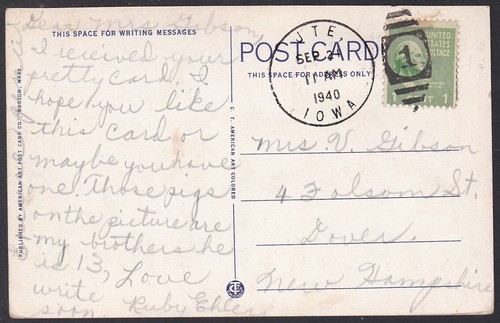 THIS SPACE FOR WRITING MESSAGES
POST CARD
THIS SPACE FOR ADDRESS ONLY
UTE,
SEP 2
11 AM
1940
IOWA
1
UNITED
STATES
POSTAGE
1
Dear Mrs Gibson,
I received your
pretty card. I
hope you like
this card or
maybe you have
one. Those pigs
on the picture are
my brothers he
is 13, Love
write
soon. Ruby Ehler
Mrs. V. Gibson
4 Folsom St.
Dover,
New Hampshire
PUBLISHED BY AMERICAN ART POST CARD CO., BOSTON, MASS.
C. T. AMERICAN ART COLORED